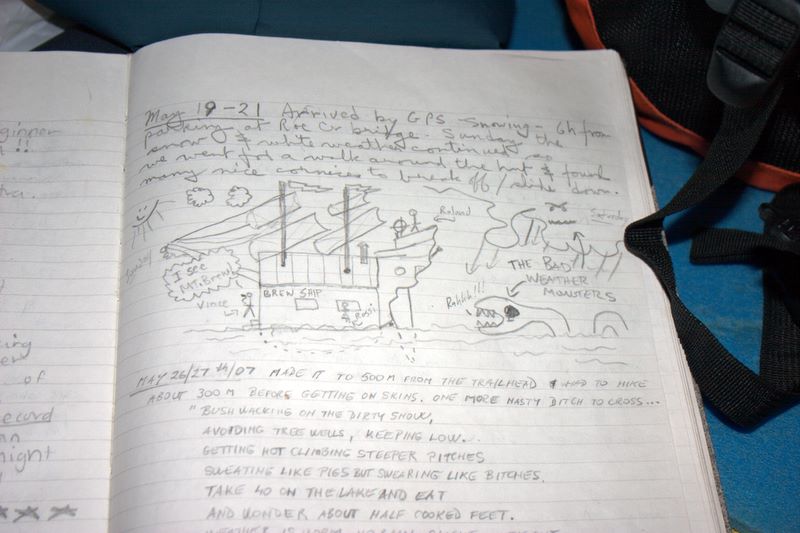 ginner
!!
tra.
ing
er
of
ecord
night
May 19-21 Arrived by GPS snowing - 6h from
parking at Roe Cr bridge. Sunday the
snow & white weather continued so
we went for a walk around the hut & found
many nice cornices to break off / slide down.
Roland
Saturday
I SEE
MT. BREW!
Vince
BREW SHIP
Rahhh!!!
THE BAD
WEATHER
MONSTERS
MAY 26/27th/07 MADE IT TO 500M FROM THE TRAILHEAD & HAD TO HIKE
ABOUT 300M BEFORE GETTING ON SKINS. ONE MORE NASTY DITCH TO CROSS...
"BUSH WACKING ON THE DIRTY SNOW,
AVOIDING TREE WELLS, KEEPING LOW.
GETTING HOT CLIMBING STEEPER PITCHES
SWEATING LIKE PIGS BUT SWEARING LIKE BITCHES.
TAKE 40 ON THE LAKE AND EAT
AND WONDER ABOUT HALF COOKED FEET.